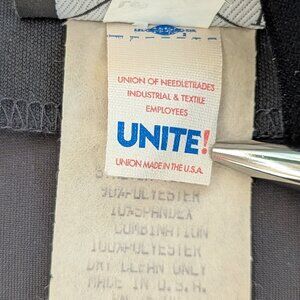 UNION OF NEEDLETRADES
INDUSTRIAL & TEXTILE
EMPLOYEES
UNITE!
UNION MADE IN THE U.S.A.
90%POLYESTER
10%SPANDEX
COMBINATION
100%POLYESTER
DRY CLEAN ONLY
MADE IN U.S.A.